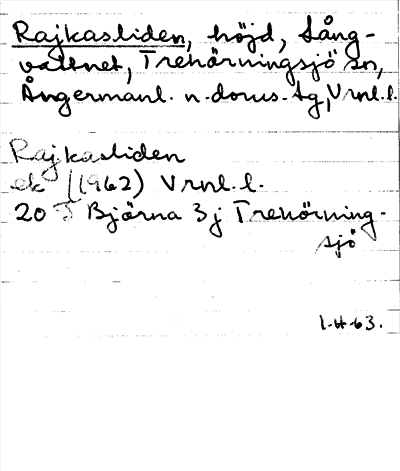 Rajkasliden, höjd, Lång-
vattnet, Trehörningsjö sn,
Ångermanl. n. doms. tg, Vrnl. l.
Rajkasliden
ek (1962) Vrnl. l.
20 J Björna 3j Trehörning-
sjö
1-H-63.